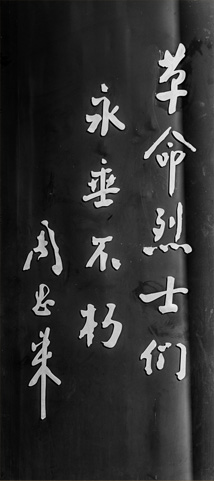 革命烈士们
永垂不朽
周恩来